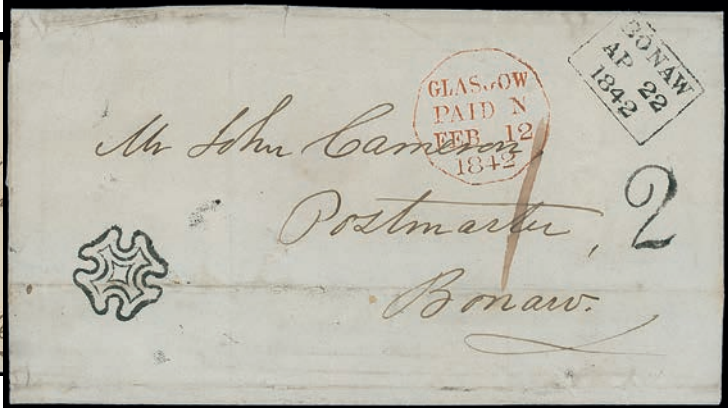 BONAW
AP 22
1842
GLASGOW
PAID N
FEB 12
1842
Mr John Cameron,
Postmaster,
Bonaw.
1
2